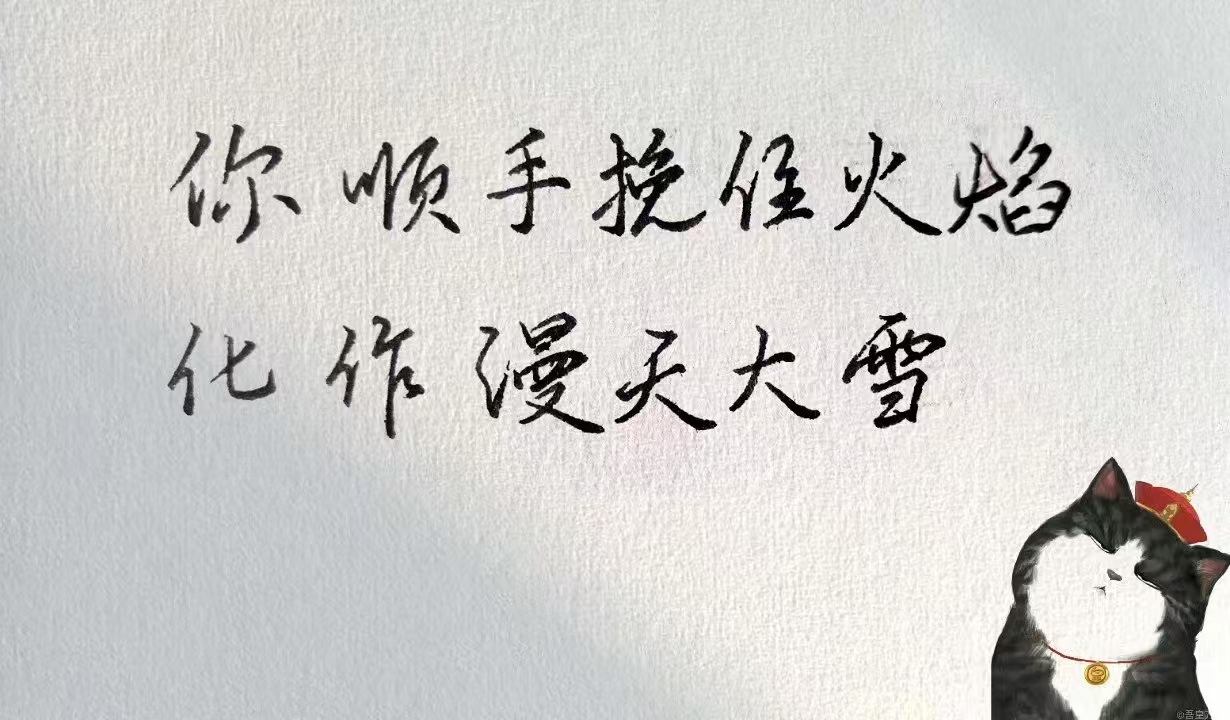 你顺手挽住火焰
化作漫天大雪
@吾皇